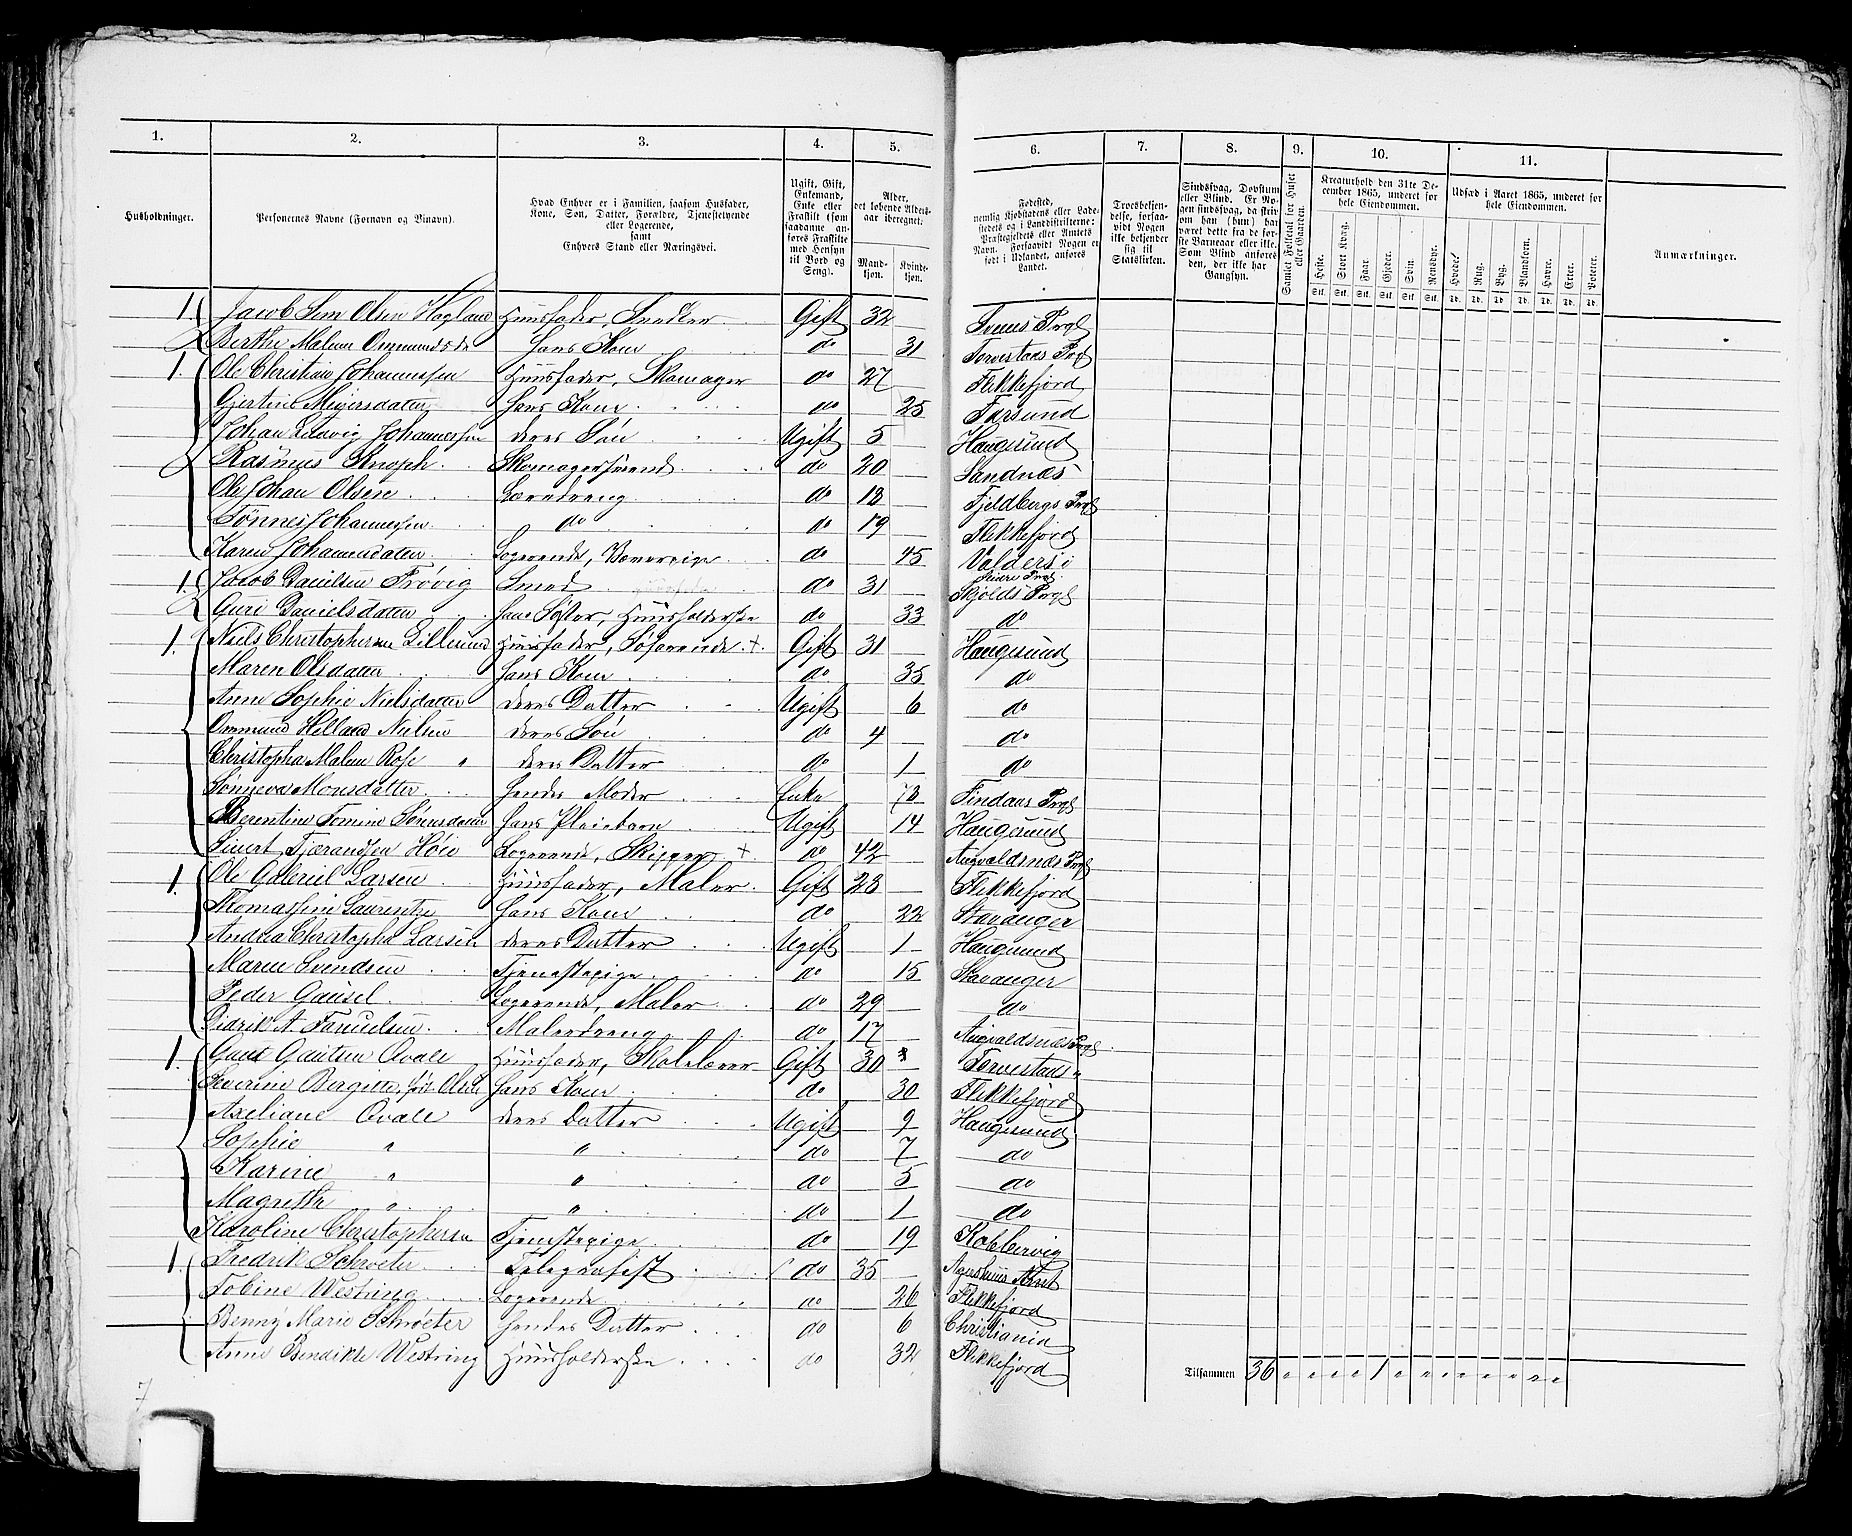 1. 2. 3. 4. 5. 6. 7. 8. 9. 10. 11.
Husholdninger.
Personernes Navne (Fornavn og Tilnavn).
Hvad Enhver er i Familien, saasom Husfader, Kone, Søn, Datter, Forældre, Tjenestetyende eller Logerende, samt Enhvers Stand eller Næringsvei.
Ugift, Gift, Enkemand, Enke eller Fraskilt (som saadanne anføres Fraskilte med Hensyn til Bord og Seng).
Alder, det løbende Aldersaar iberegnet.
Mandkjøn.
Kvindekjøn.
Fødested, nemlig Kjøbstadens eller Ladestedets og i Landdistrikterne: Præstegjeldets eller Amtets Navn. Forsaavidt Nogen er født i Udlandet, anføres Landet.
Troesbekjendelse, forsaavidt Nogen ikke bekjender sig til Statskirken.
Sindssvag, Døvstum eller Blind. Er Nogen sindssvag, da skrives om han (hun) har været dette fra de første Barneaar eller ikke. Som Blind anføres den, der ikke har Gangsyn.
Samlet Folketal for Huset eller Gaarden.
Kreaturhold den 31te December 1865, underet for hele Eiendommen.
Heste. Stort Kvæg. Faar. Gjeder. Svin. Rensdyr.
Stk. Stk. Stk. Stk. Stk. Stk.
Udsæd i Aaret 1865, underet for hele Eiendommen.
Hvede. Rug. Byg. Blandkorn. Havre. Erter. Poteter.
Td. Td. Td. Td. Td. Td. Td.
Anmærkninger.
1. Jacob Sem Olsen Hagland Huusfader, Snedker Gift 32 Svenes Prgl
Berthe Malene Ommundsd. hans Kone do 31 Torvestads Prgl
1. Ole Christian Johannessen Huusfader, Skomager do 27 Flekkefjord
Gjertine Meyersdatter hans Kone do 25 Farsund
Johan Ludvig Johannessen deres Søn Ugift 5 Haugesund
Rasmus Knoph Skomagersvend do 20 Sandnæs
Ole Johan Olsen Læredreng do 18 Fjeldbergs Prgl
Tønnes Johannessen do do 19 Flekkefjord
Karen Johannesdatter Logerende, Væverpige do 45 Valdersø
1. Jacob Danielsen Frøvig Smed do 31 Skjolds Prgl
Guri Danielsdatter hans Søster, Huusholderske do 33 do
1. Niels Christophersen Lillesund Huusfader, Søfarende + Gift 31 Haugesund
Maren Olsdatter hans Kone do 35 do
Anne Sophie Nielsdatter deres Datter Ugift 6 do
Ommund Helland Nielsen deres Søn do 4 do
Christopha Malene Rose " deres Datter do 1 do
Sønneva Monsdatter hendes Moder Enke 73 Findaas Prgl
Berentine Tomine Sørensdatter hans Pleiebarn Ugift 14 Haugesund
Sivert Tjærandsen Høie Logerende, Skipper + do 42 Augvaldsnæs Prgl
1. Ole Gabriel Larsen Huusfader, Maler Gift 28 Flekkefjord
Thomassine Laurentze hans Kone do 22 Stavanger
Andrea Christopha Larsen deres Datter Ugift 1 Haugesund
Maren Svendsen Tjenestepige do 15 Stavanger
Peder Gausel Logerende, Maler do 29 do
Didrik A Samuelsen Malerdreng do 17 Augvaldsnæs Prgl
1. Gaut Gautsen Qvale Huusfader, Skolelærer Gift 30 Torvestads "
Severine Bergitte, født Olsen hans Kone do 30 Flekkefjord
Axeliane Qvale deres Datter Ugift 9 Haugesund
Sophie " " do 7 do
Karine " " do 5 do
Magrethe " " do 1 do
Karoline Christophersen Tjenestepige do 19 Kobbervig
1. Fredrik Schrøter Telegrafist do 35 Agershuus Amt
Tobine Westring Logerende do 26 Flekkefjord
Benny Marie Schrøter hendes Datter do 6 Christiania
Anne Bendikte Westring Huusholderske do 32 Flekkefjord
Tilsammen 36 " " " " 1 " " " " " " " "
7